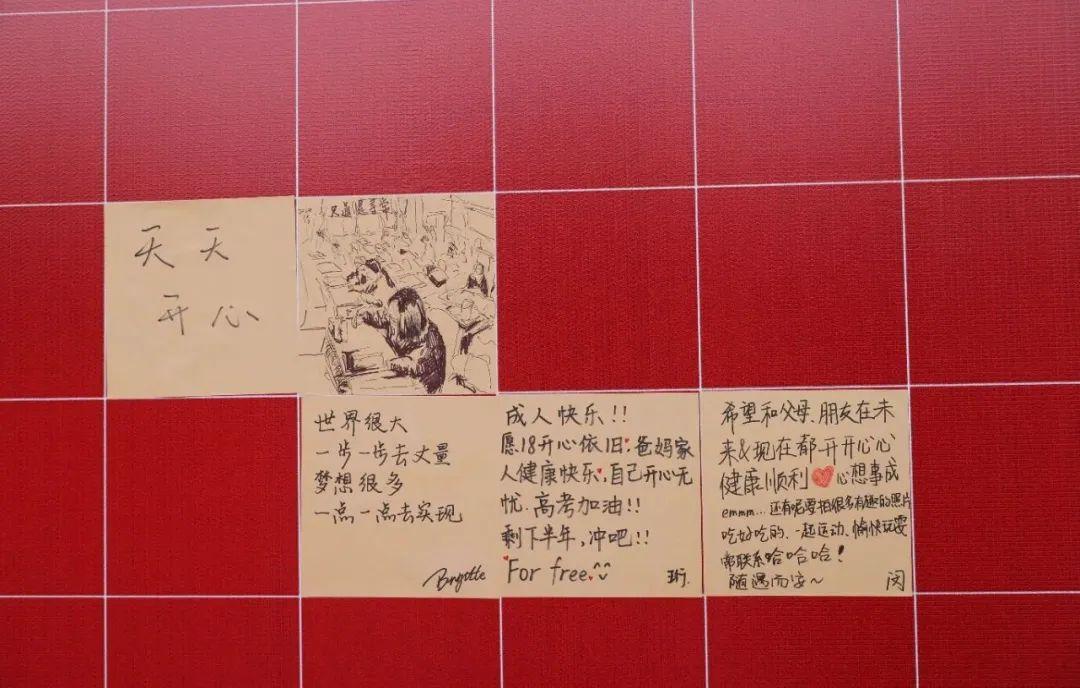 天天
开心
世界很大
一步一步去丈量
梦想很多
一点一点去实现
Brigitte
成人快乐!!
愿18开心依旧,爸妈家
人健康快乐,自己开心无
忧.高考加油!!
剩下半年,冲吧!!
For free.^^
珩.
希望和父母、朋友在未
来&现在都开开心心
健康顺利❤心想事成
emmm...还有呢要拍很多有趣的照片
吃好吃的、一起运动、愉快玩耍
常联系哈哈哈!
随遇而安~
闵